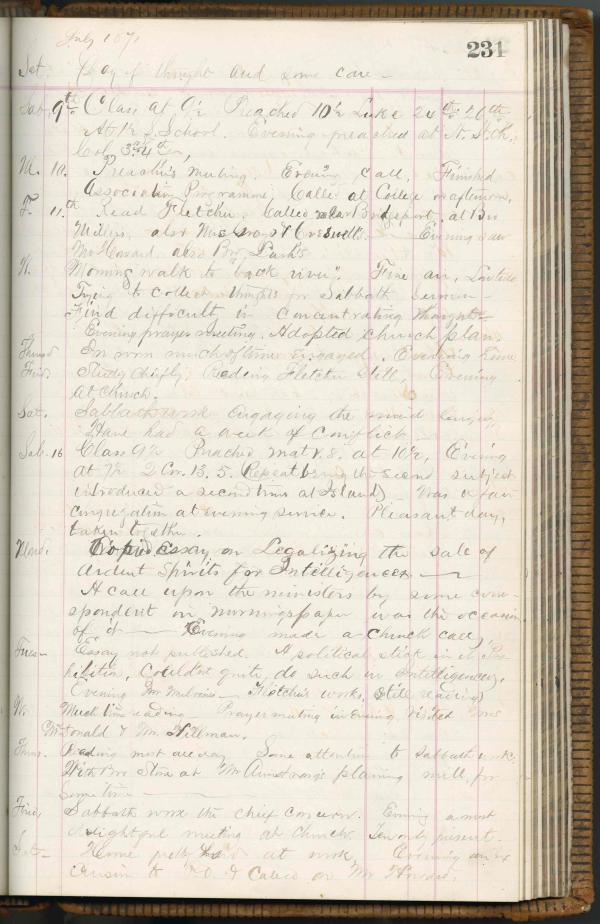 July 1871
231
Sat. Day of thought and some care -
Sab. 9th Class at 9½ Preached 10½ Luke 24th: 26th
At 1½ S. School. Evening preached at N. St. Ch.
Col. 3rd: 4th
M. 10. Preachers meeting. Evening call. Finished
Association Programme. Called at College in afternoon.
T. 11.th Read Fletcher. Called near Bridgeport, at Bro
Millers, also Mrs & Creswells. Evening saw
Mr Howard also Bro Lusk's
W. Morning walk to back river. Fine air,
Trying to collect thoughts for Sabbath sermon -
Find difficulty in concentrating thought -
Evening prayer meeting. Adopted church plan.
Thursd In room much of time engaged. Evening home
Frid. Study chiefly. Reading Fletcher still, Evening
at Church.
Sat. Sabbath work engaging the mind largely,
Have had a week of conflict
Sab. 16 Class 9½ Preached Mat V. 8. at 10½, Evening
at 7½ 2 Cor. 13. 5. (Repeat being the second subject
introduced a second time at Island) - Was a fair
congregation at evening service. Pleasant day,
taken together.
Mond. Copied Essay on Legalizing the sale of
Ardent Spirits for Intelligencer. —
A call upon the ministers by some corre-
spondent in morning paper was the occasion
of it — Evening made a church call,
Tues - Essay not published. A political stick in it Pro
hibition, Couldn't quite do such in Intelligencer,
Evening Mr — Fletcher's works, still reading
W. Much time reading Prayer meeting in Evening Visited Mrs
McDonald & Mr. Hillman.
Thurs. Reading most all day Some attention to Sabbath work,
With Bro Stone at Mr Armstrong's planing mill, for
some time —
Frid, Sabbath work the chief concern. Evening a most
delightful meeting at Church. Ten only present.
Sat - Home pretty hard at work, Evening an ex
cursion to P.O. & called on Mr Howard.